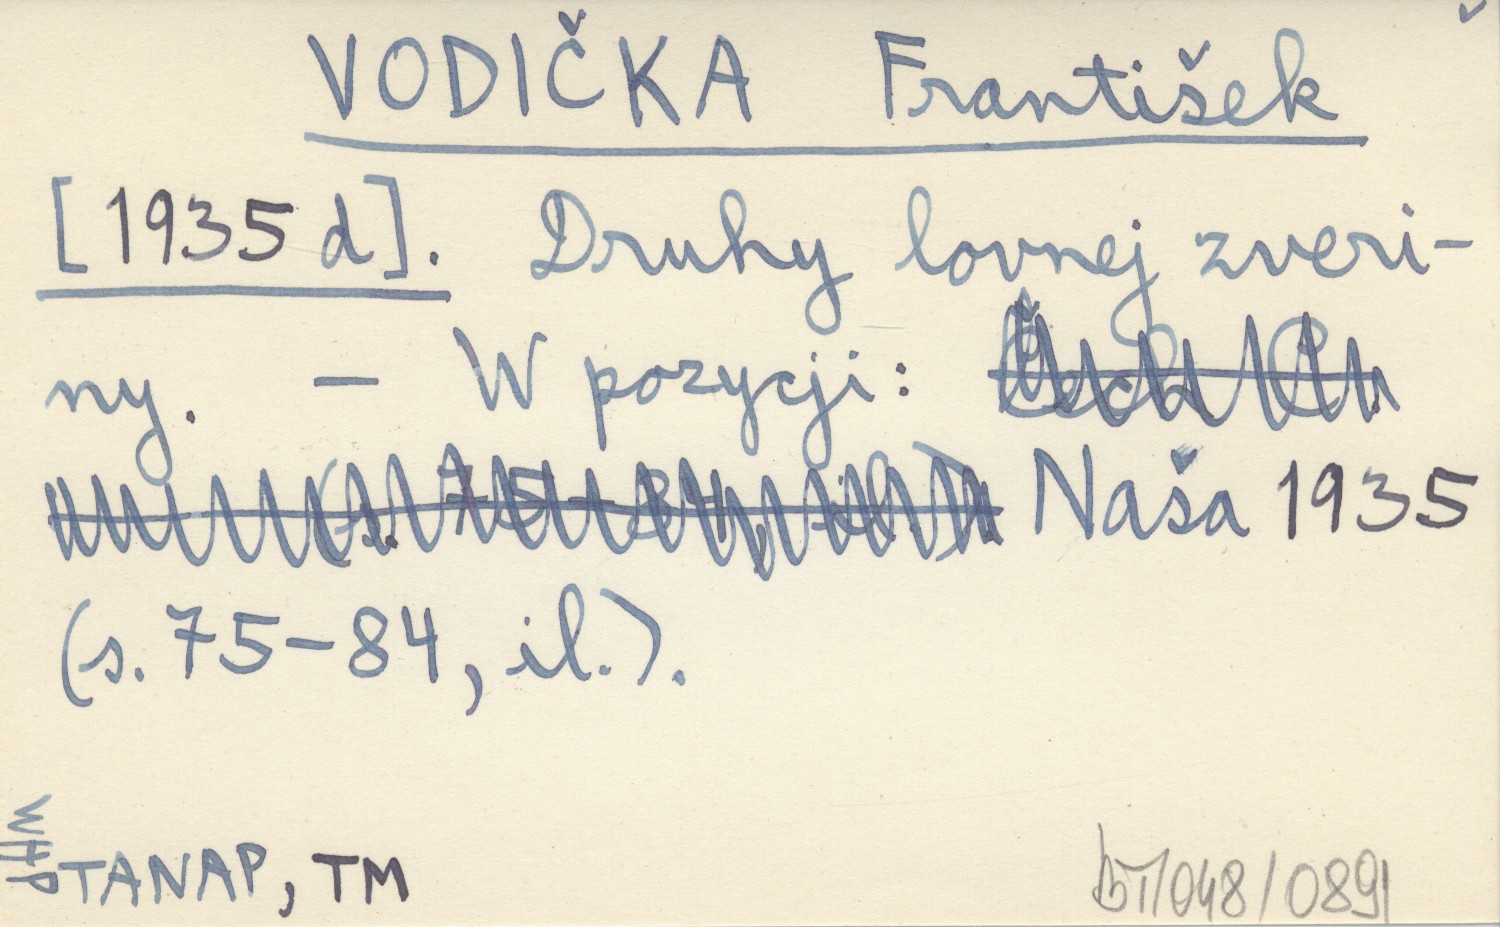 VODIČKA František
[1935 d]. Druhy lovnej zveri-
ny. — W pozycji:
(s. 75-84, il.) Naša 1935
(s. 75-84, il.).
WHP
TANAP, TM
bT/048/0891